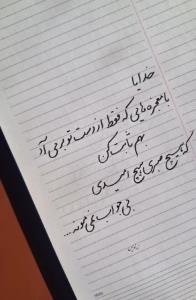 خدایا
با معجزه هایی که فقط از دست تو بر می آد
بهم ثابت کن
که هیچ صبری هیچ امیدی
بی جواب نمی مونه...